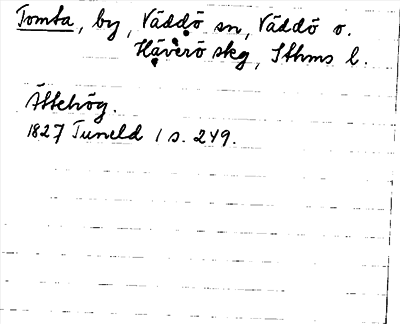 Tomta, by, Väddö sn, Väddö o.
Häverö skg, Sthms l.
Ättehög.
1827 Tuneld 1 s. 249.